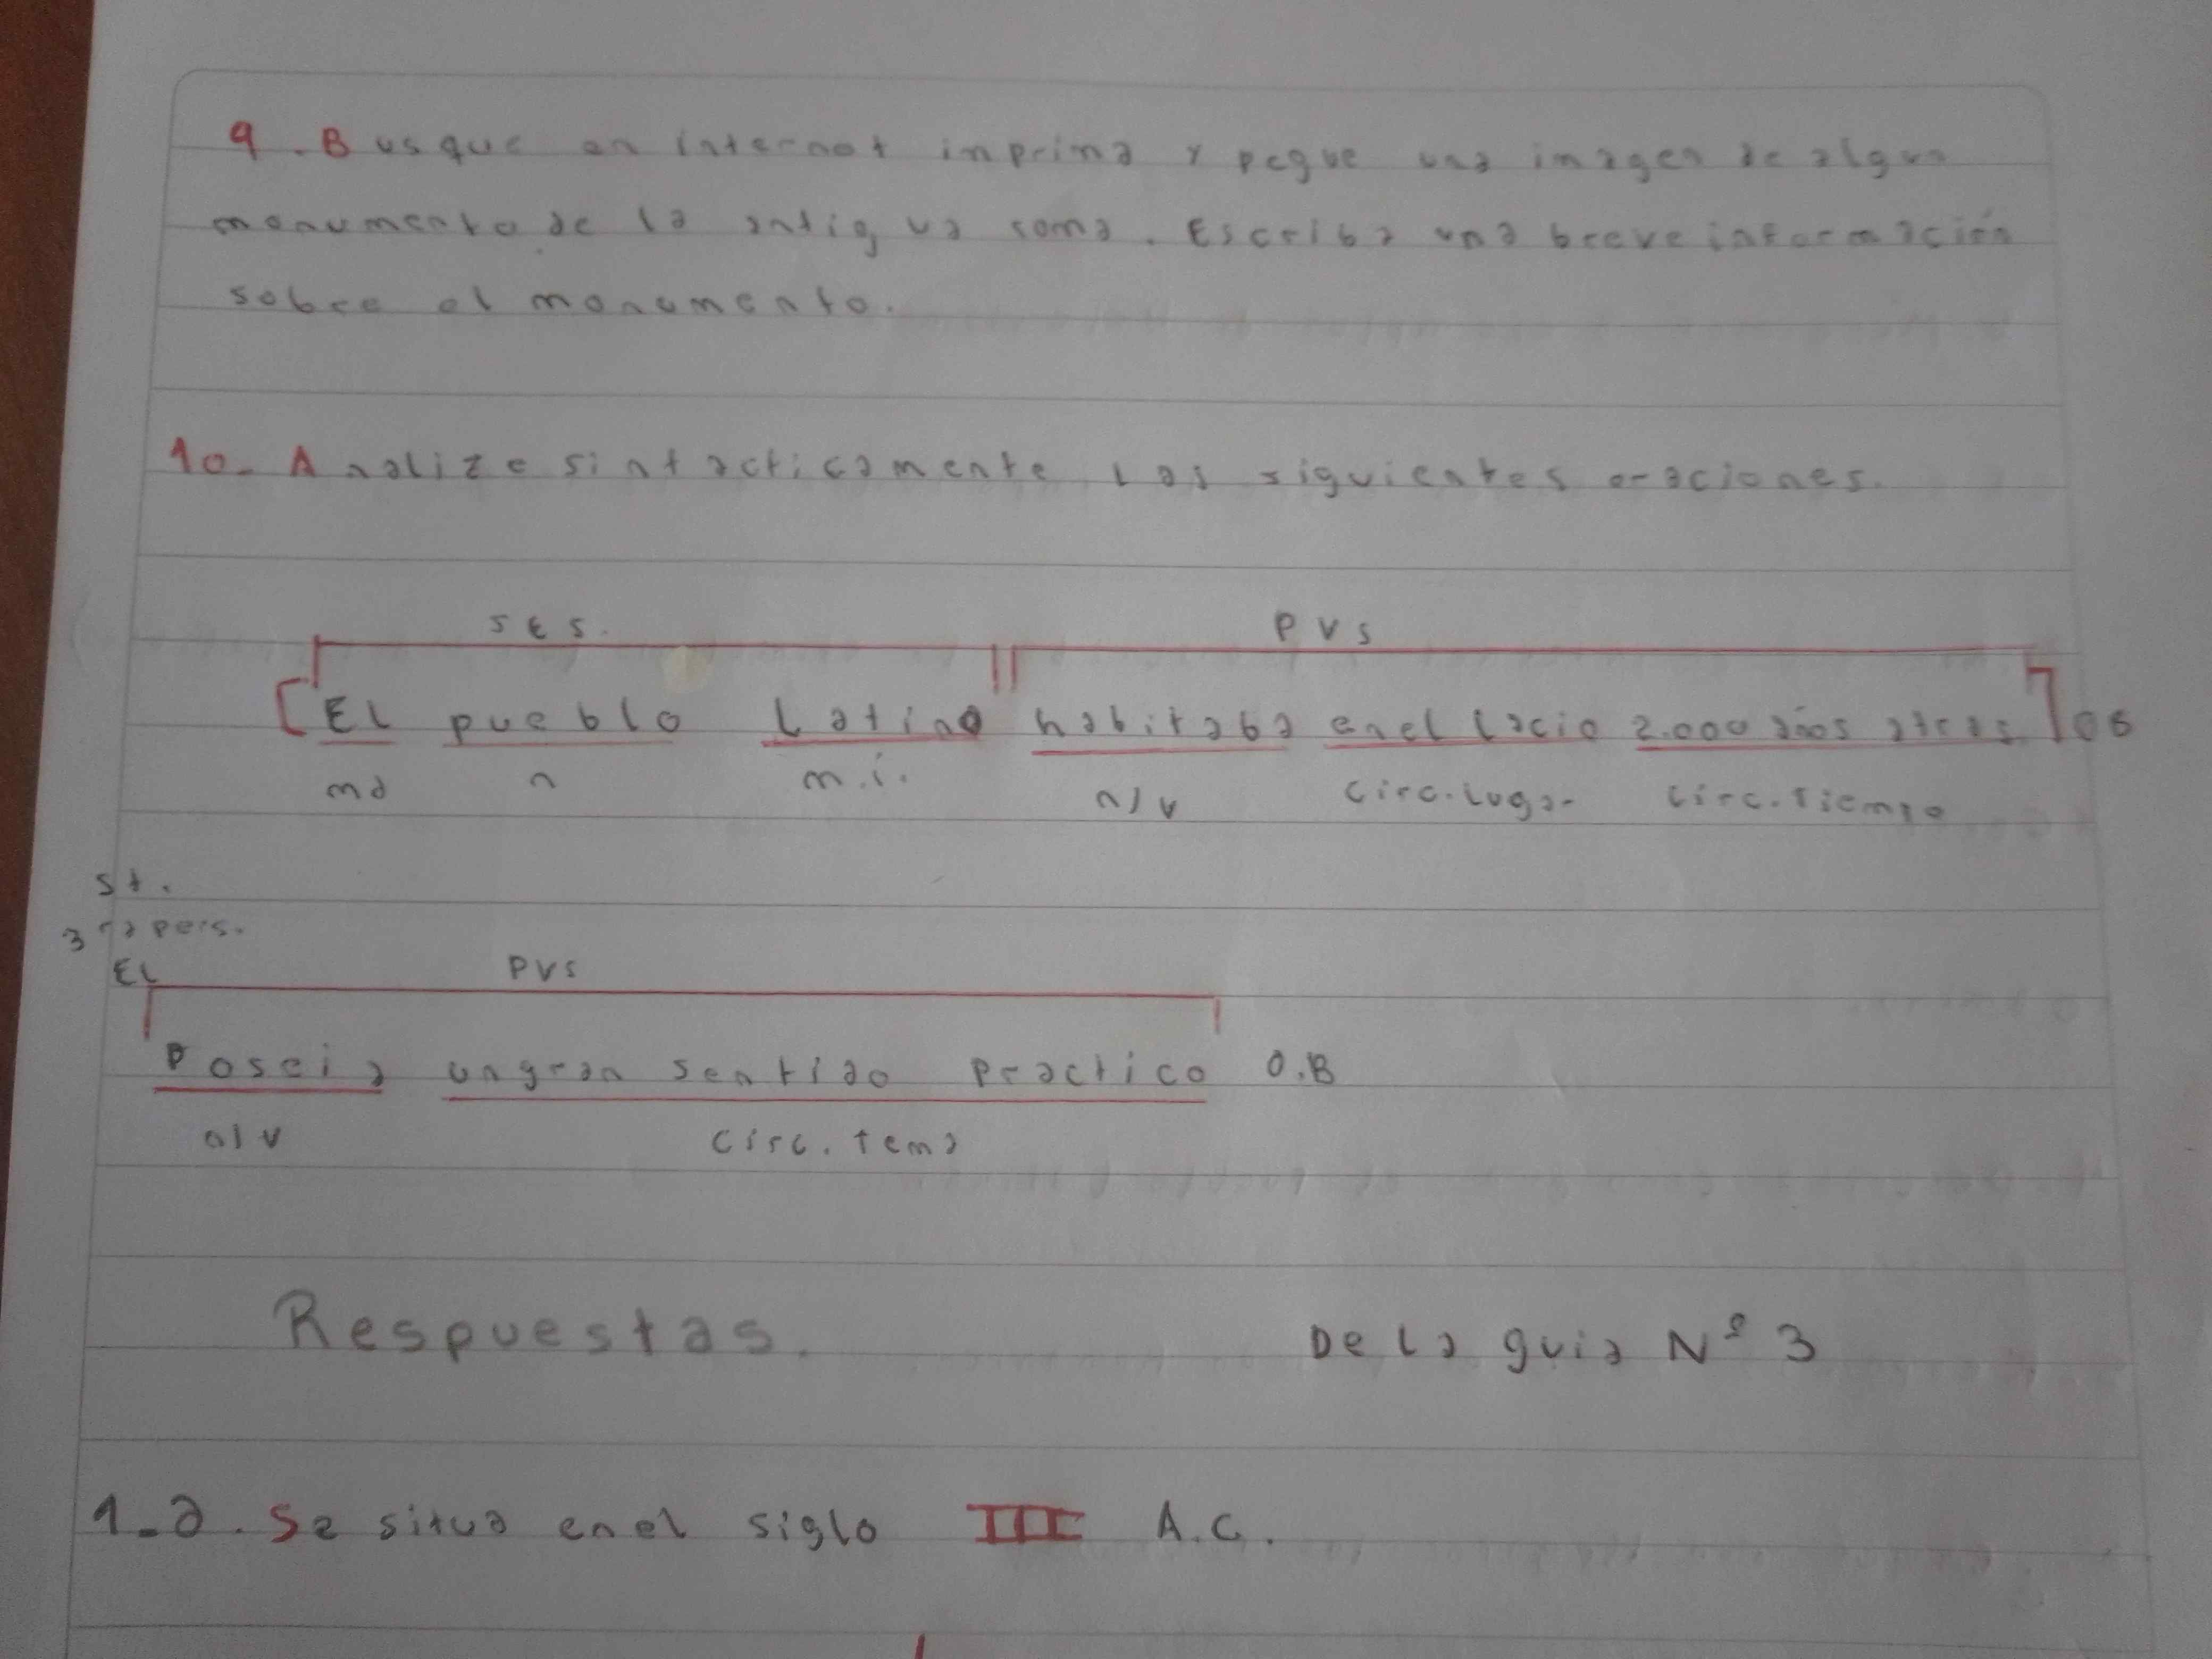 9. Busque en internet inprima y pegue una imagen de algun
monumento de la antigua roma. Escriba una breve información
sobre el monumento.
10- Analize sintacticamente las siguientes oraciones.
S E S. PVS
[El pueblo Latino habitaba en el Lacio 2.000 años atras] OB
md n m.i. n/v circ. Lugar circ. Tiempo
St.
3ra pers.
EL PVS
Poseia un gran sentido practico O.B
n/v circ. tema
Respuestas. De la guia Nº 3
1-a. Se situa en el siglo III A.C.